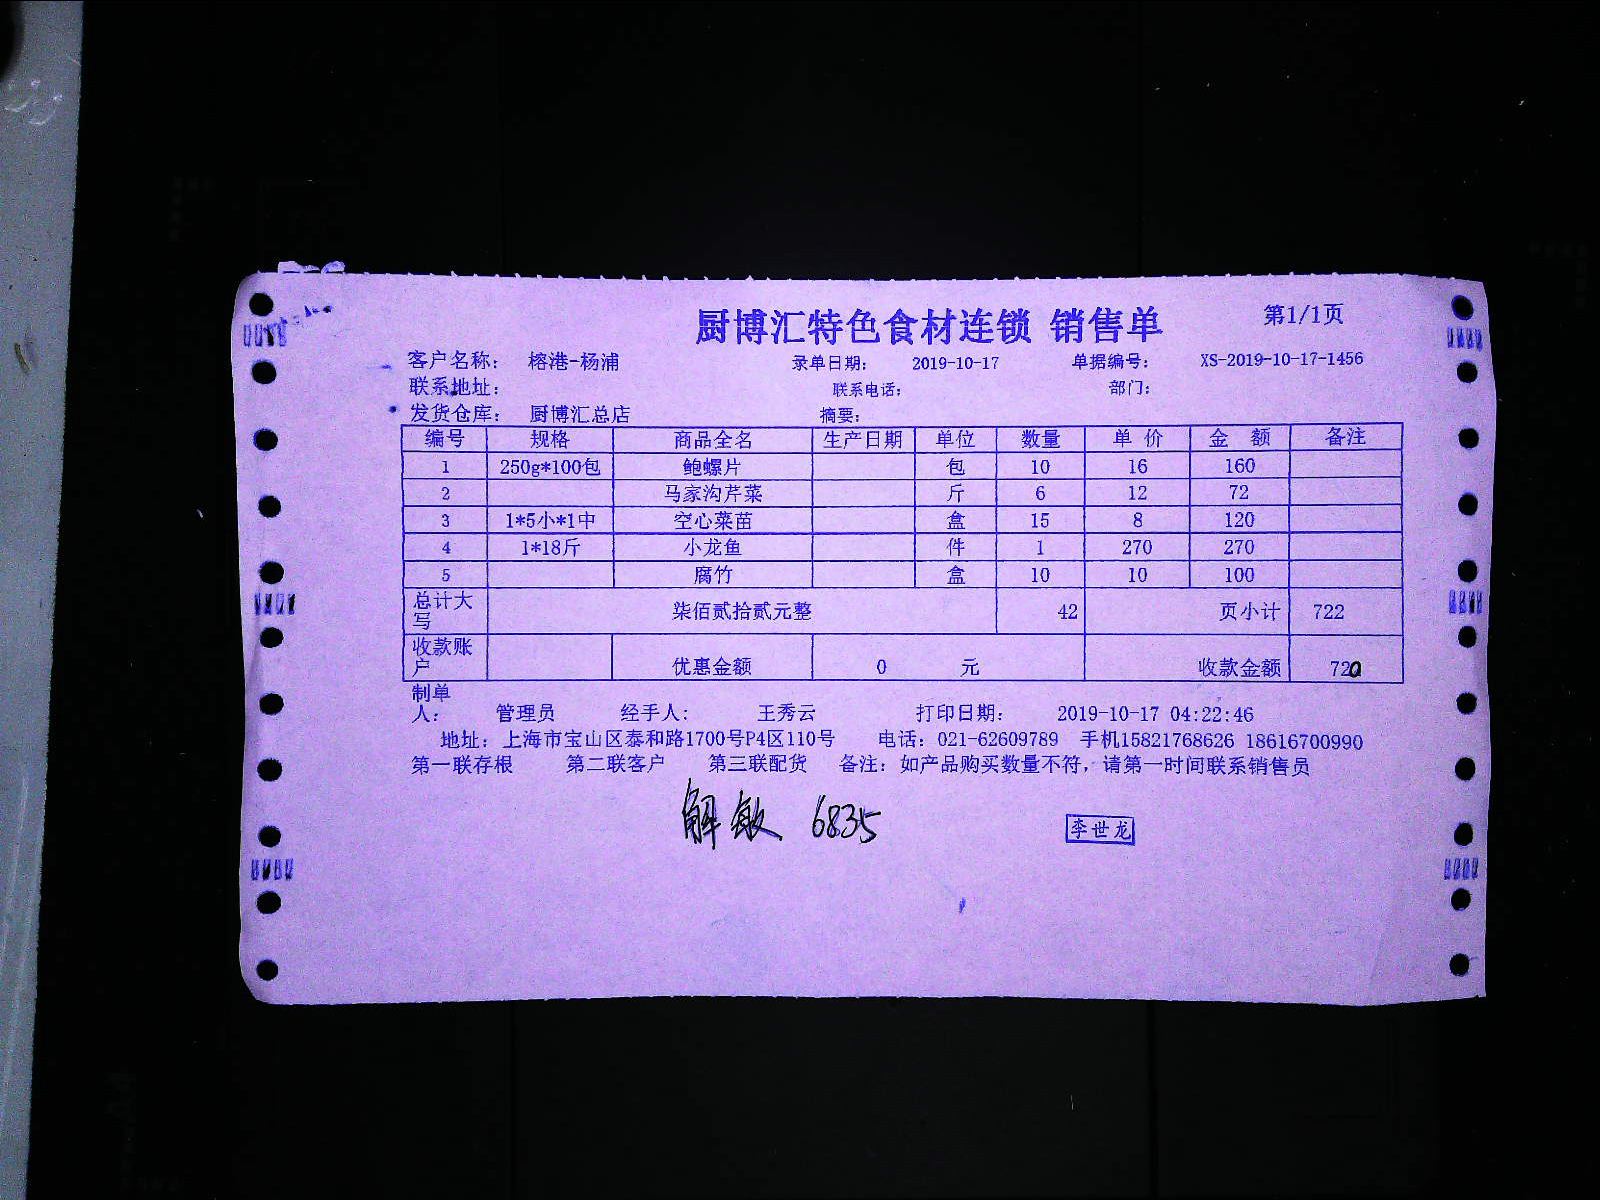 厨博汇特色食材连锁 销售单 第1/1页
客户名称： 榕港-杨浦 录单日期： 2019-10-17 单据编号： XS-2019-10-17-1456
联系地址： 联系电话： 部门：
发货仓库： 厨博汇总店 摘要：
编号 规格 商品全名 生产日期 单位 数量 单 价 金 额 备注
1 250g*100包 鲍螺片 包 10 16 160
2 马家沟芹菜 斤 6 12 72
3 1*5小*1中 空心菜苗 盒 15 8 120
4 1*18斤 小龙鱼 件 1 270 270
5 腐竹 盒 10 10 100
总计大写 柒佰贰拾贰元整 42 页小计 722
收款账户 优惠金额 0 元 收款金额 720
制单人： 管理员 经手人： 王秀云 打印日期： 2019-10-17 04:22:46
地址：上海市宝山区泰和路1700号P4区110号 电话：021-62609789 手机15821768626 18616700990
第一联存根 第二联客户 第三联配货 备注：如产品购买数量不符，请第一时间联系销售员
解敏 6835 李世龙